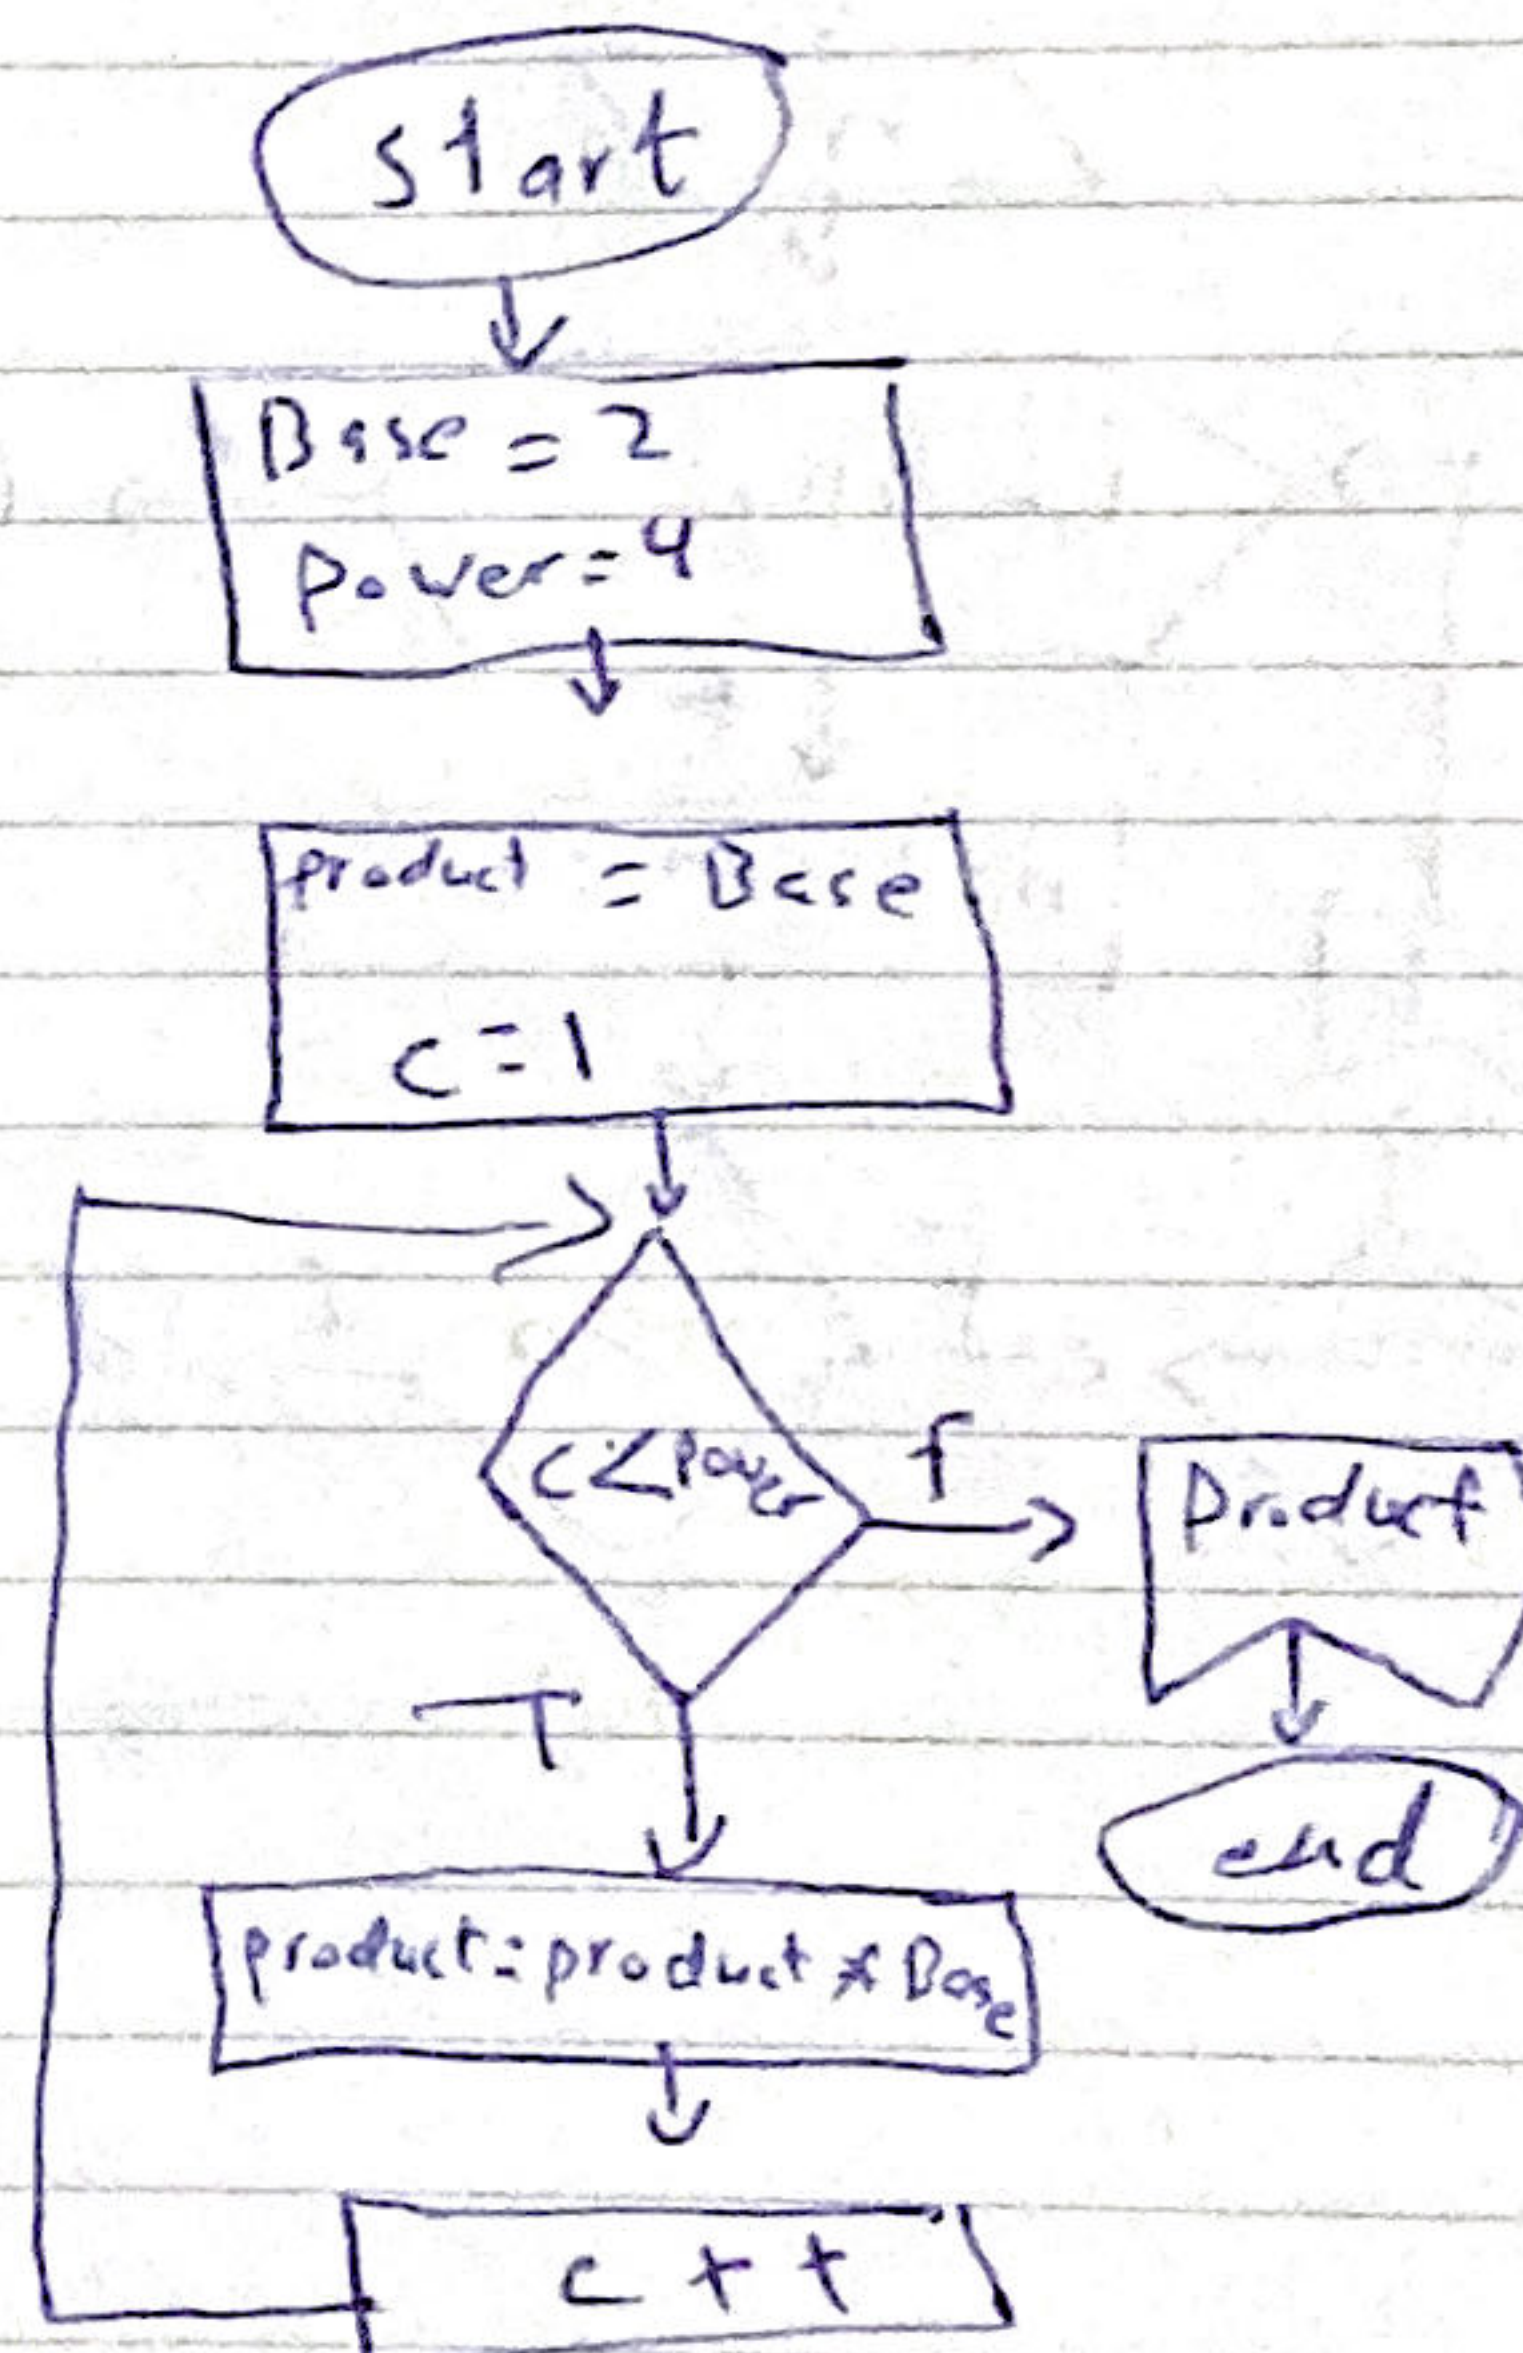 start
Base = 2
Power = 4
product = Base
c = 1
c < Power
f
Product
T
end
product = product * Base
c + +